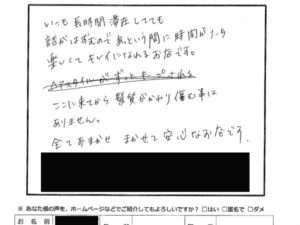 いつも長時間滞在してても
話がはずむので あっという間に時間がたち
楽しくてキレイになれるお店です。
ここに来てから 髪質がかわり傷む事は
ありません。
全ておまかせ まかせて安心なお店です。
※ あなた様の声を、ホームページなどでご紹介してもよろしいですか? □はい □匿名で □ダメ
お名前